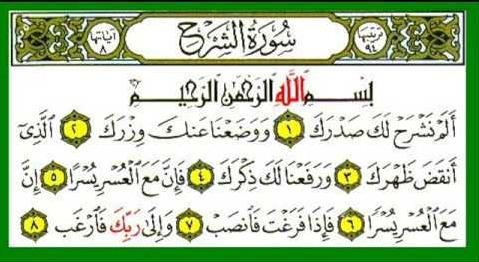 ترتيبها ٩٤ سُورَةُ الشَّرْح آياتها ٨
بِسْمِ اللَّهِ الرَّحْمَٰنِ الرَّحِيمِ
أَلَمْ نَشْرَحْ لَكَ صَدْرَكَ ١ وَوَضَعْنَا عَنكَ وِزْرَكَ ٢ الَّذِي
أَنقَضَ ظَهْرَكَ ٣ وَرَفَعْنَا لَكَ ذِكْرَكَ ٤ فَإِنَّ مَعَ الْعُسْرِ يُسْرًا ٥ إِنَّ
مَعَ الْعُسْرِ يُسْرًا ٦ فَإِذَا فَرَغْتَ فَانصَبْ ٧ وَإِلَىٰ رَبِّكَ فَارْغَب ٨